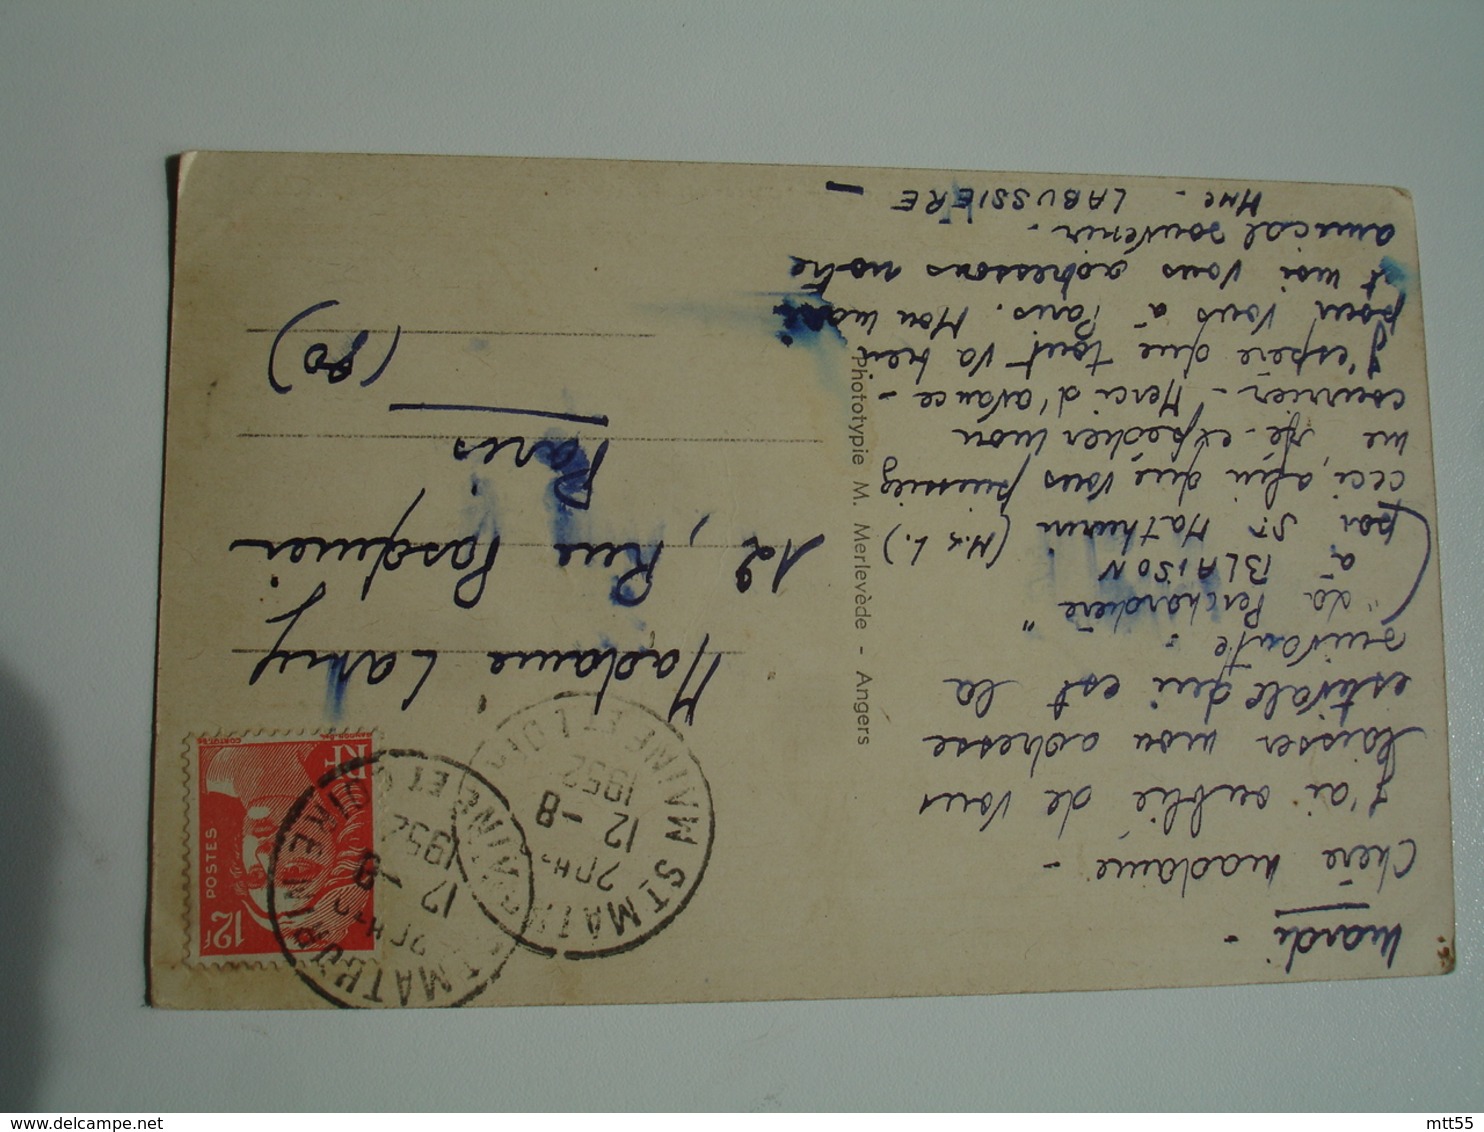 Mardi -
Chère Madame -
J'ai oublié de vous
laisser mon adresse
estivale qui est la
suivante -
"La Perchardière"
à BLAISON
par St Mathurin (M. & L.)
ceci, afin que vous puissiez
me ré-expédier mon
courrier - Merci d'avance -
J'espère que tout va bien
pour vous à Paris. Mon mari
et moi vous adressons notre
amical souvenir -
Mme - LABUSSIERE -
Phototypie M. Merlevède - Angers
Madame
12, Rue Pasquier
Paris
ST MATHURIN
MAINE ET LOIRE
12 - 8
1952
ST MATHURIN
MAINE ET LOIRE
12 - 8
1952
12F
POSTES
RF
mtt55